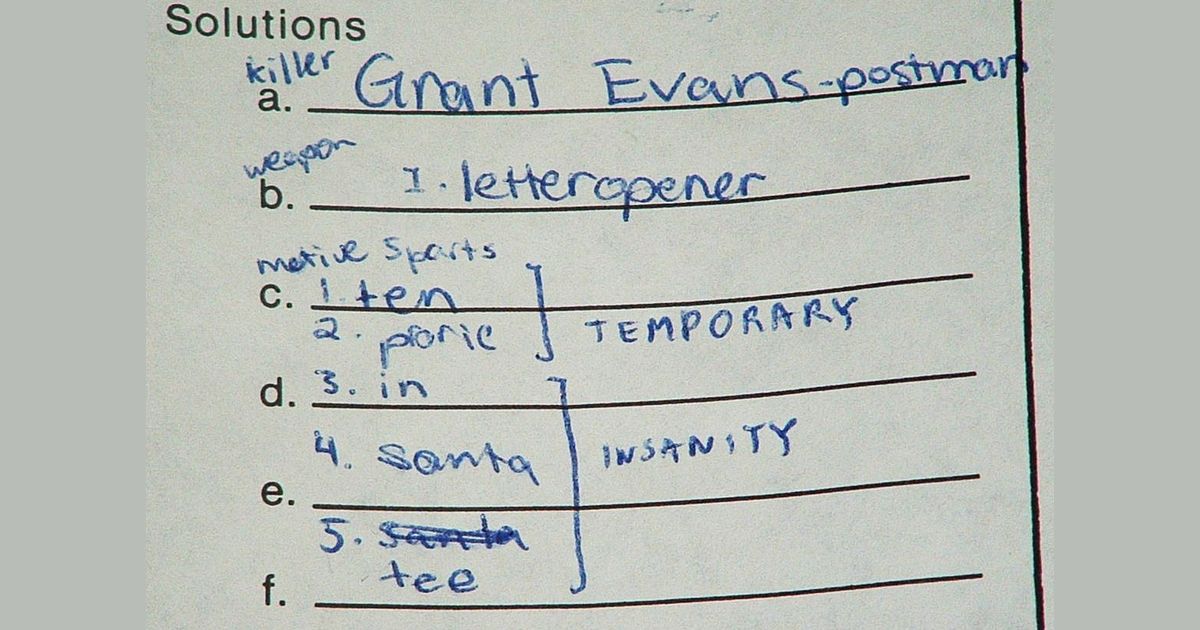 Solutions
killer
a. Grant Evans-postman
weapon
b. 1. letteropener
motive 5parts
c. 1. ten
2.
TEMPORARY
d. 3. in
4. santa
INSANITY
e.
5. santa
tee
f.